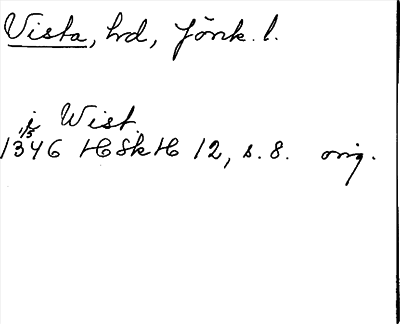 Vista, hrd, Jönk. l.
i Wist
1/5
1346 HSkH 12, s. 8. orig.